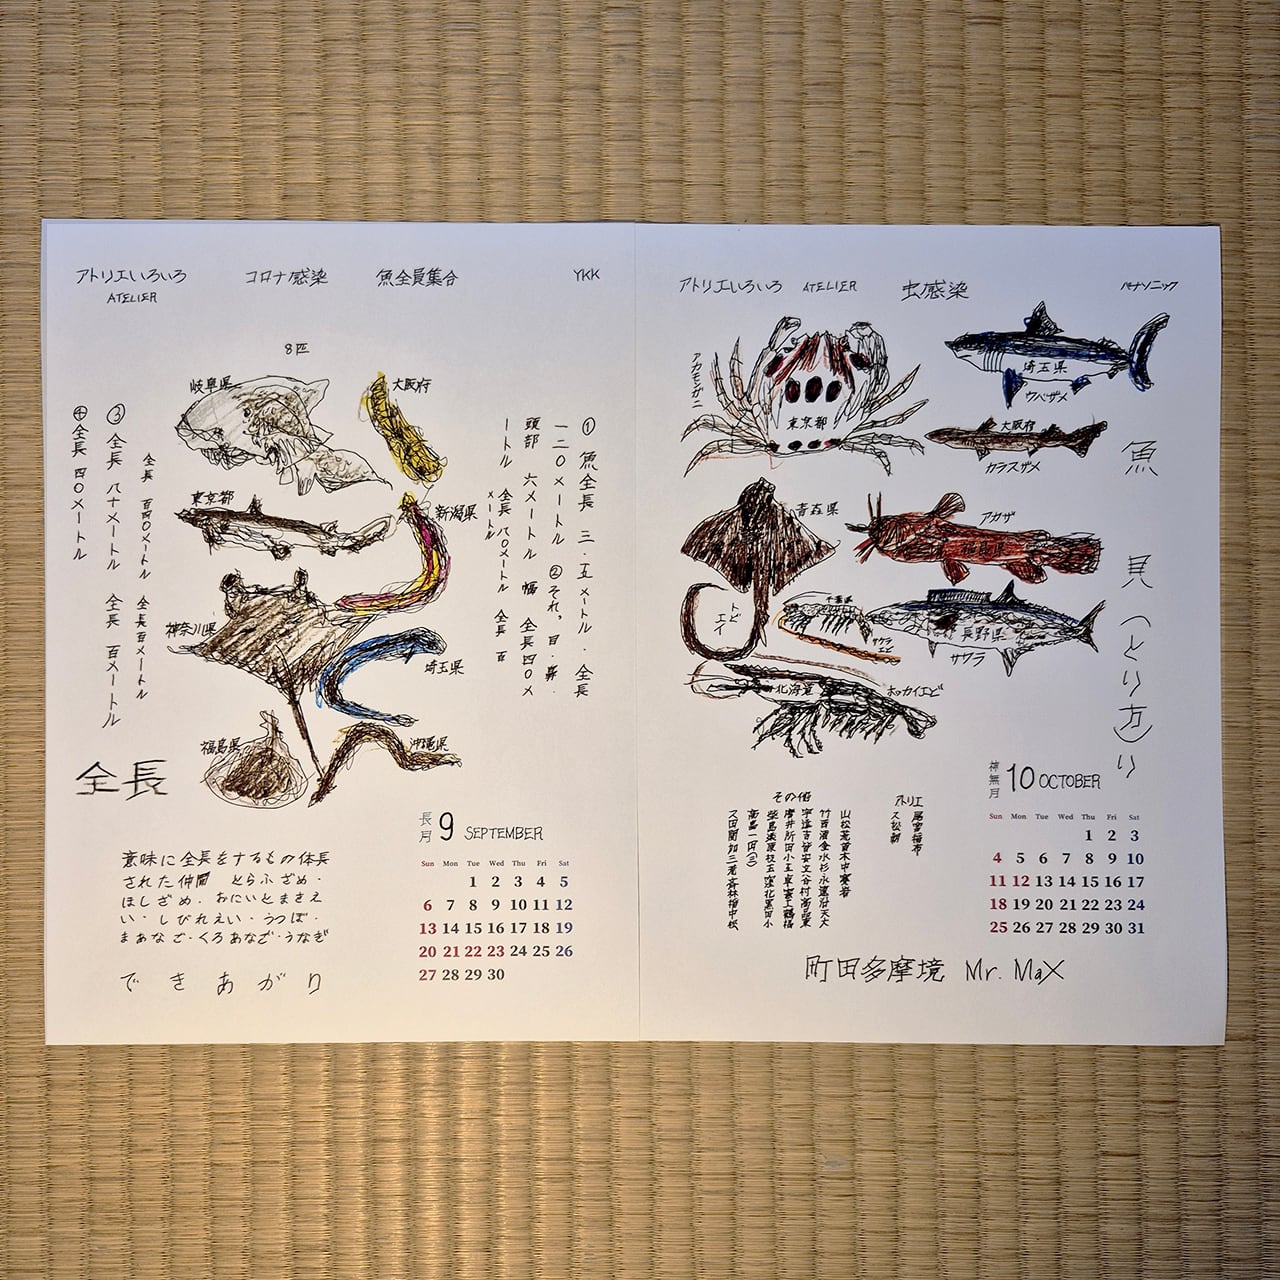 アトリエいろいろ コロナ感染 魚全員集合 YKK
ATELIER
8匹
岐阜県
大阪府
東京都
新潟県
神奈川県
埼玉県
福島県
沖縄県
① 魚全長 三.五メートル.全長
一二〇メートル ②それ,目.鼻.
頭部 六メートル 幅 全長四〇メ
ートル 全長 八〇メートル 全長 百
メートル
全長 百四〇メートル 全長百メートル
③ 全長 八十メートル 全長 百メートル
④全長 四〇メートル
全長
意味に全長をするもの体長
された仲間 とらふざめ.
ほしざめ.おにいとまきえ
い.しびれえい.うつぼ.
まあなご.くろあなご.うなぎ
できあがり
長月 9 SEPTEMBER
Sun Mon Tue Wed Thu Fri Sat
1 2 3 4 5
6 7 8 9 10 11 12
13 14 15 16 17 18 19
20 21 22 23 24 25 26
27 28 29 30
アトリエいろいろ ATELIER 虫感染 パナソニック
アカモンガニ
東京都
埼玉県
ウバザメ
大阪府
カラスザメ
青森県
トビエイ
アカザ
福島県
千葉県
サクラエビ
長野県
サワラ
北海道
ホッカイエビ
魚 見(とり方)り
その術
アトリエ
神無月 10 OCTOBER
Sun Mon Tue Wed Thu Fri Sat
1 2 3
4 5 6 7 8 9 10
11 12 13 14 15 16 17
18 19 20 21 22 23 24
25 26 27 28 29 30 31
町田多摩境 Mr. Max